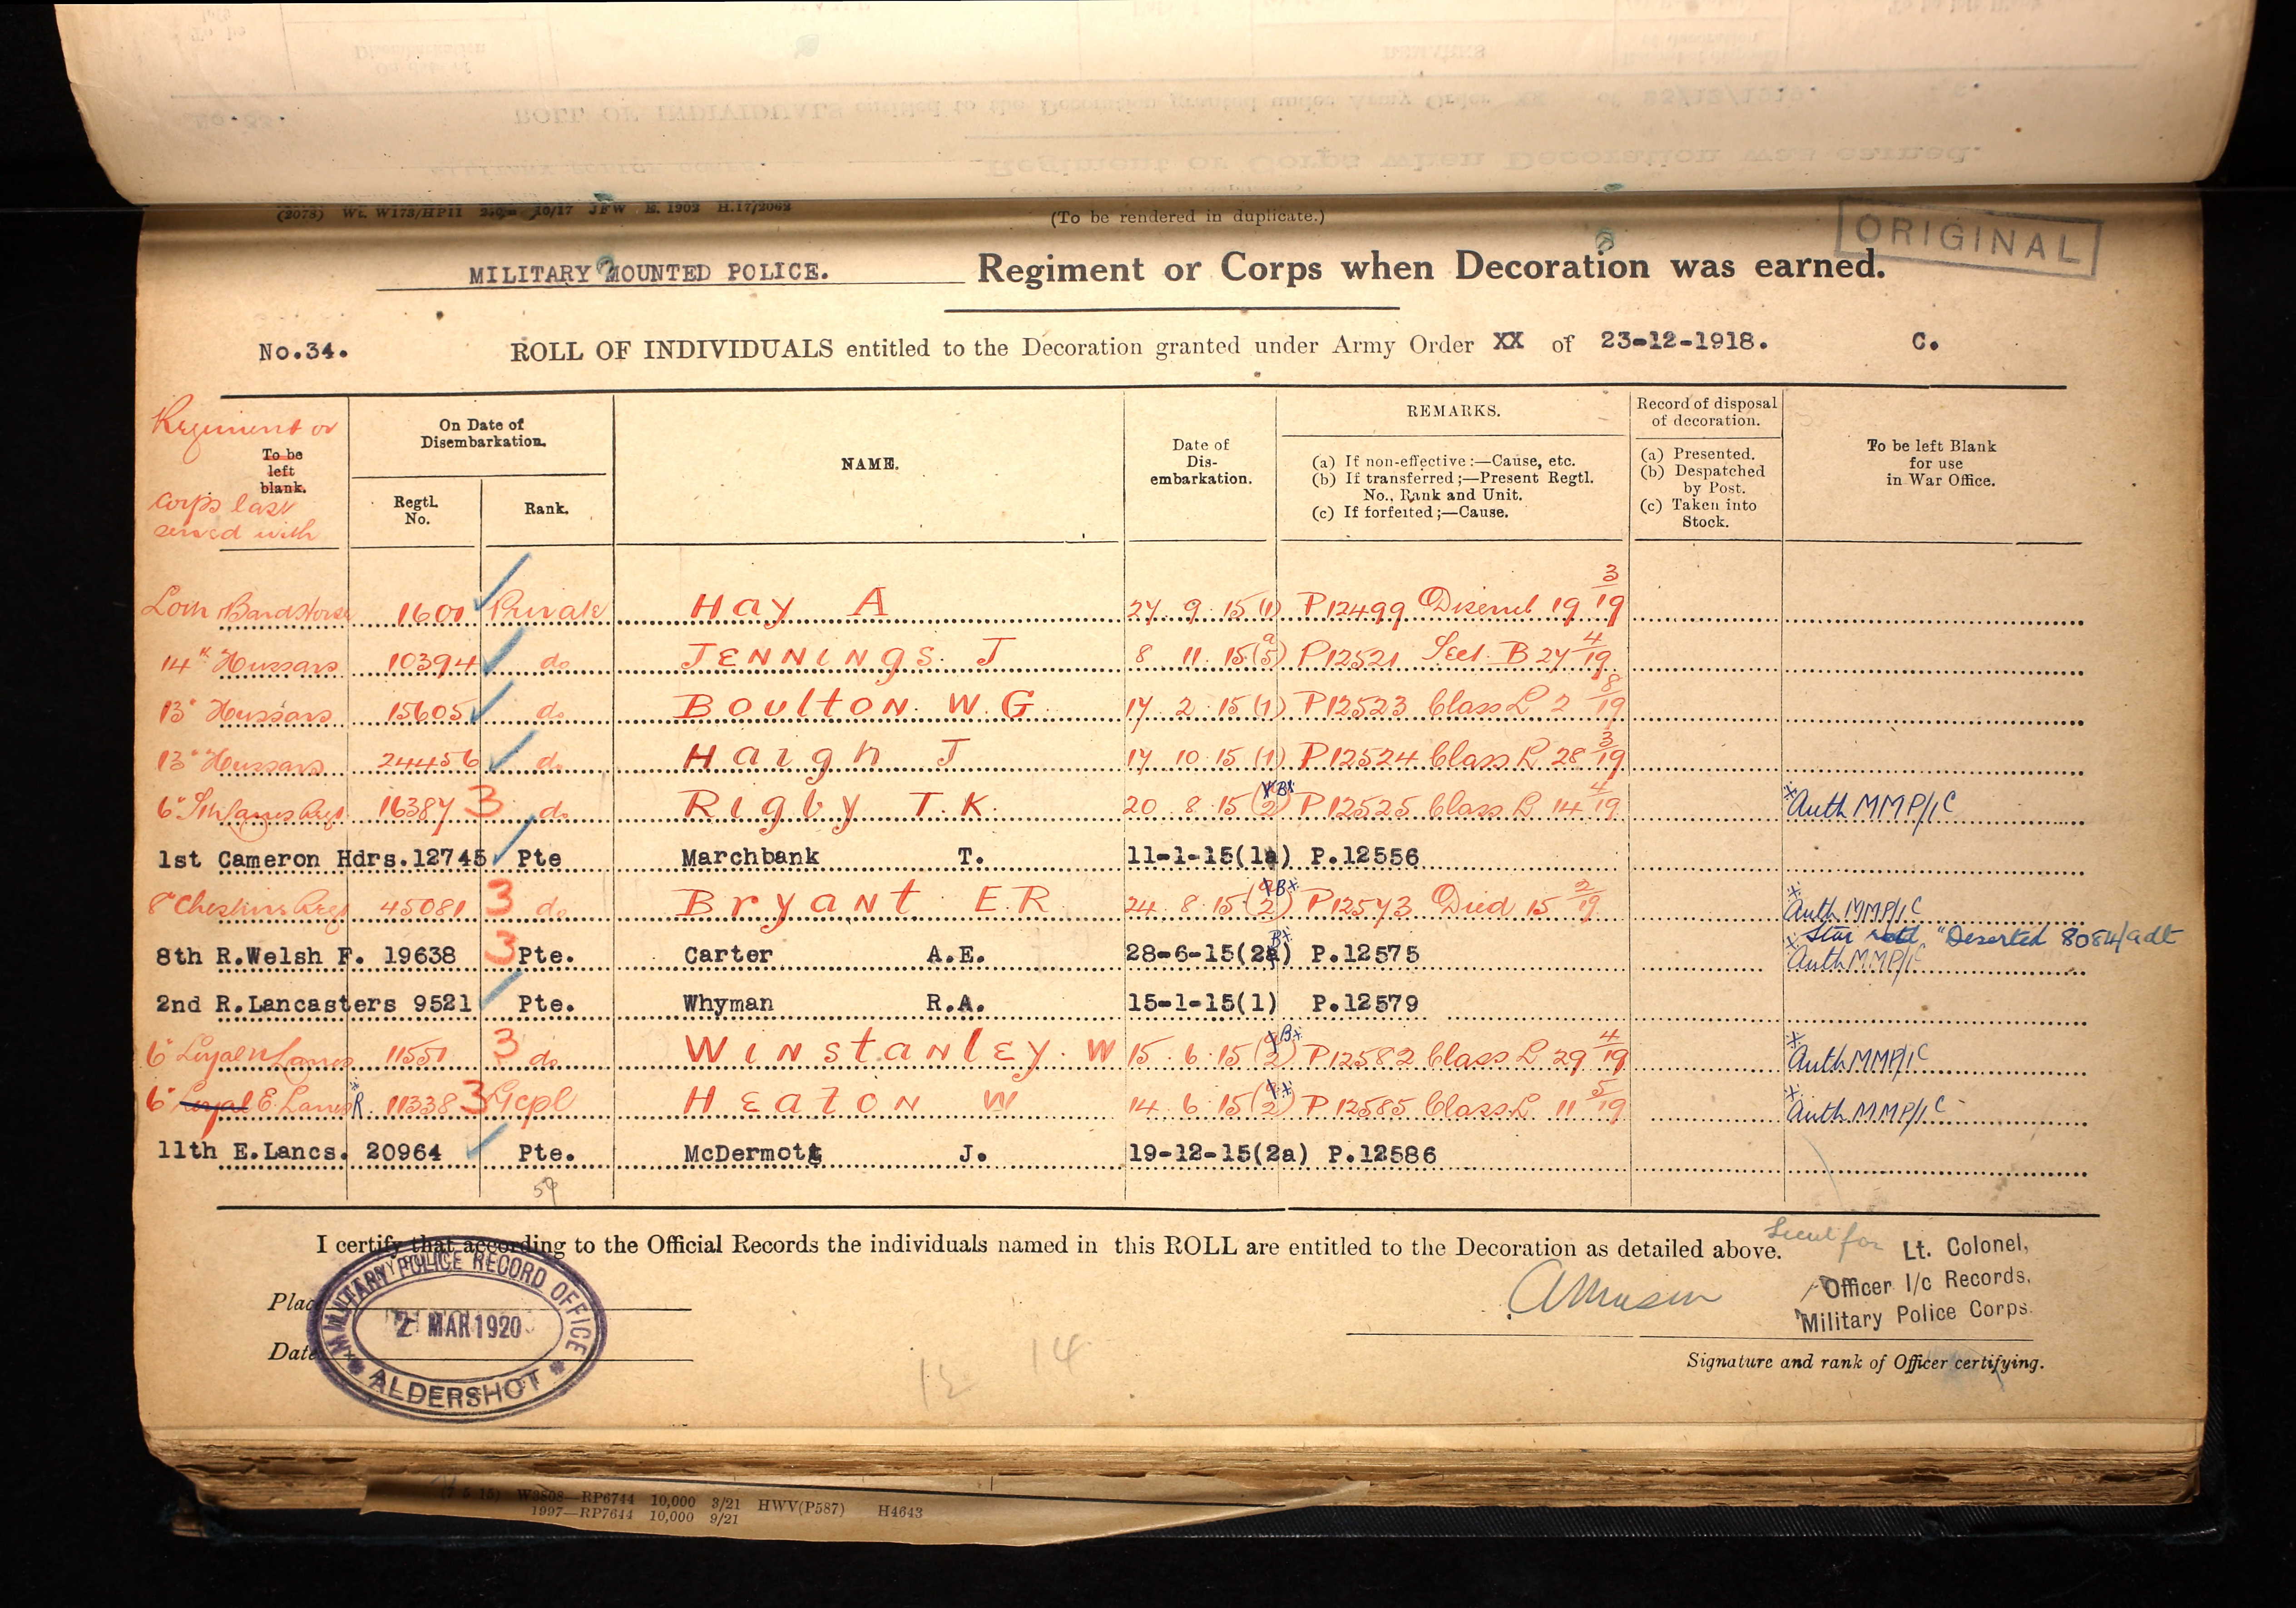 (2078) Wt. W173/HP11 250m 10/17 JFW E. 1902 H.17/2062
(To be rendered in duplicate.)
ORIGINAL
MILITARY MOUNTED POLICE. Regiment or Corps when Decoration was earned.
No.34. ROLL OF INDIVIDUALS entitled to the Decoration granted under Army Order XX of 23-12-1918. C.
Regiment or
To be
left
blank.
Corps last
served with
On Date of
Disembarkation.
Regtl.
No.
Rank.
NAME.
Date of
Dis-
embarkation.
REMARKS.
(a) If non-effective:—Cause, etc.
(b) If transferred;—Present Regtl.
No., Rank and Unit.
(c) If forfeited;—Cause.
Record of disposal
of decoration.
(a) Presented.
(b) Despatched
by Post.
(c) Taken into
Stock.
To be left Blank
for use
in War Office.
1601 Private Hay A 27 9 15 (1) P12499 Disemb 19 3/19
14th Hussars 10394 do JENNINGS J 8 11 15 P12521 B 27 4/19
13th Hussars 15605 do BOULTON W.G. 17 2 15 (1) P12523 Class L 2 8/19
13th Hussars 24456 do Haigh J 17 10 15 (1) P12524 Class L 28 3/19
16387 3 do Rigby T.K. 20 8 15 (2) P12525 Class L 14 4/19 x Auth MMP/1C
1st Cameron Hdrs. 12745 Pte Marchbank T. 11-1-15(1a) P.12556
8th Cheshire Regt 45081 3 do Bryant E R 24 8 15 (2) P12573 Died 15 2/19 x Auth MMP/1C
Star retd "Deserted" 8084/adt
8th R.Welsh F. 19638 3 Pte. Carter A.E. 28-6-15(2a) P.12575 x Auth MMP/1C
2nd R.Lancasters 9521 Pte. Whyman R.A. 15-1-15(1) P.12579
6th Loyal N Lancs 11551 3 do Winstanley W 15 6 15 (2) P12582 Class L 29 4/19 x Auth MMP/1C
6th Loyal E. Lancs R. 11338 3 HEATON W 14 6 15 (2) P12585 Class L 11 5/19 x Auth MMP/1C
11th E.Lancs. 20964 Pte. McDermott J. 19-12-15(2a) P.12586
I certify that according to the Official Records the individuals named in this ROLL are entitled to the Decoration as detailed above.
Lieut for Lt. Colonel,
Officer I/c Records,
Military Police Corps.
Place
Date
MILITARY POLICE RECORD OFFICE
2 MAR 1920
ALDERSHOT
14
Signature and rank of Officer certifying.
W3808—RP6744 10,000 3/21 HWV(P587) H4643
1997—RP7644 10,000 9/21